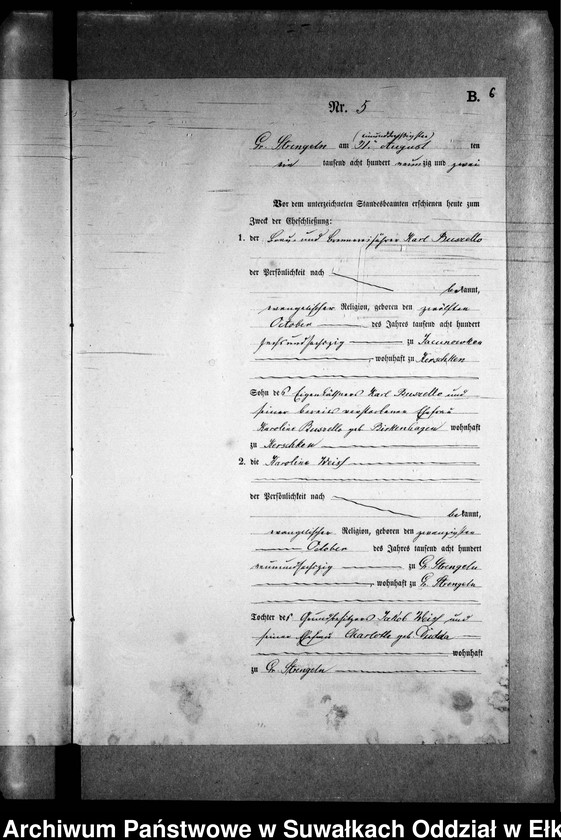 B. 6
Nr. 5
(einunddreißigsten)
Gr. Strengeln am 31. August ten
ein tausend acht hundert neunzig und zwei
Vor dem unterzeichneten Standesbeamten erschienen heute zum
Zweck der Eheschließung:
1. der Brau- und Brennereiführer Karl Buszello
der Persönlichkeit nach
bekannt,
evangelischer Religion, geboren den zwölften
October des Jahres tausend acht hundert
sechsundsechzig zu Jacunowken
, wohnhaft zu Kerschken
Sohn des Eigenkäthners Karl Buszello und
seiner bereits verstorbenen Ehefrau
Karoline Buszello geb Birkenhagen wohnhaft
zu Kerschken
2. die Karoline
der Persönlichkeit nach
bekannt,
evangelischer Religion, geboren den zwanzigsten
October des Jahres tausend acht hundert
neunundsechzig zu Gr. Strengeln
, wohnhaft zu Gr. Strengeln
Tochter des Grundbesitzers Jakob und
seiner Ehefrau Charlotte geb
wohnhaft
zu Gr. Strengeln
Archiwum Państwowe w Suwałkach Oddział w Ełk